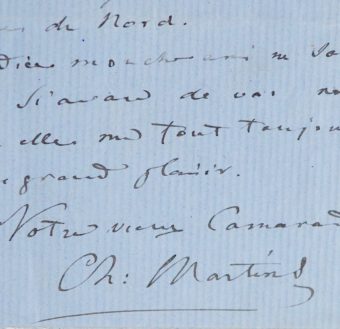 de Nord.
mon cher ami ne
si avare de vos
elles me font toujou
grand plaisir.
Votre vieux Camarad
Ch: Martins